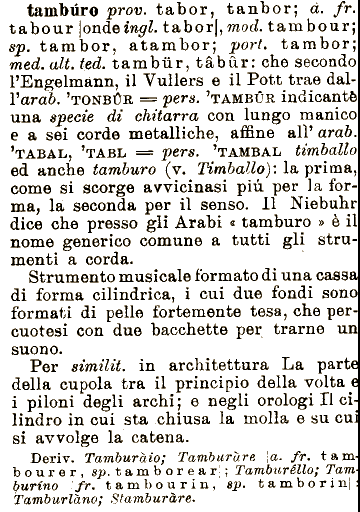 tambúro prov. tabor, tanbor; a. fr.
tabour [onde ingl. tabor], mod. tambour;
sp. tambor, atambor; port. tambor;
med. alt. ted. tambûr, tâbûr: che secondo
l'Engelmann, il Vullers e il Pott trae dal-
l'arab. 'TONBÛR = pers. 'TAMBÛR indicante
una specie di chitarra con lungo manico
e a sei corde metalliche, affine all' arab.
'TABAL, 'TABL = pers. 'TAMBAL timballo
ed anche tamburo (v. Timballo): la prima,
come si scorge avvicinasi piú per la for-
ma, la seconda per il senso. Il Niebuhr
dice che presso gli Arabi « tamburo » è il
nome generico comune a tutti gli stru-
menti a corda.
Strumento musicale formato di una cassa
di forma cilindrica, i cui due fondi sono
formati di pelle fortemente tesa, che per-
cuotesi con due bacchette per trarne un
suono.
Per similit. in architettura La parte
della cupola tra il principio della volta e
i piloni degli archi; e negli orologi Il ci-
lindro in cui sta chiusa la molla e su cui
si avvolge la catena.
Deriv. Tamburàio; Tamburàre [a. fr. tam-
bourer, sp. tamborear]; Tamburéllo; Tam-
buríno [fr. tambourin, sp. tamborin];
Tamburlàno; Stamburàre.